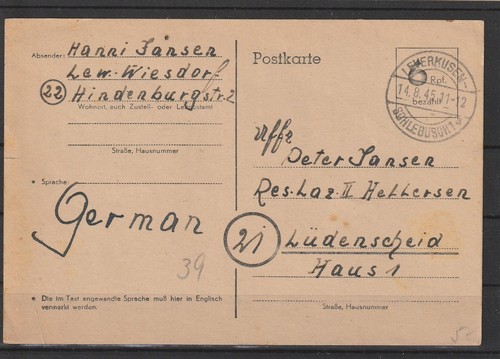 Absender: Hanni Jansen
Lew. Wiesdorf
22 Hindenburgstr. 2
Wohnort, auch Zustell- oder Leitpostamt
Straße, Hausnummer
Sprache:
German
39
Die im Text angewandte Sprache muß hier in Englisch
vermerkt werden.
Postkarte
6 Rpf.
bezahlt
LEVERKUSEN-
14.8.45.11-12
SCHLEBUSCH 1
Uffz
Peter Jansen
Res. Laz. II Hellersen
21 Lüdenscheid
Haus 1
Straße, Hausnummer
5-